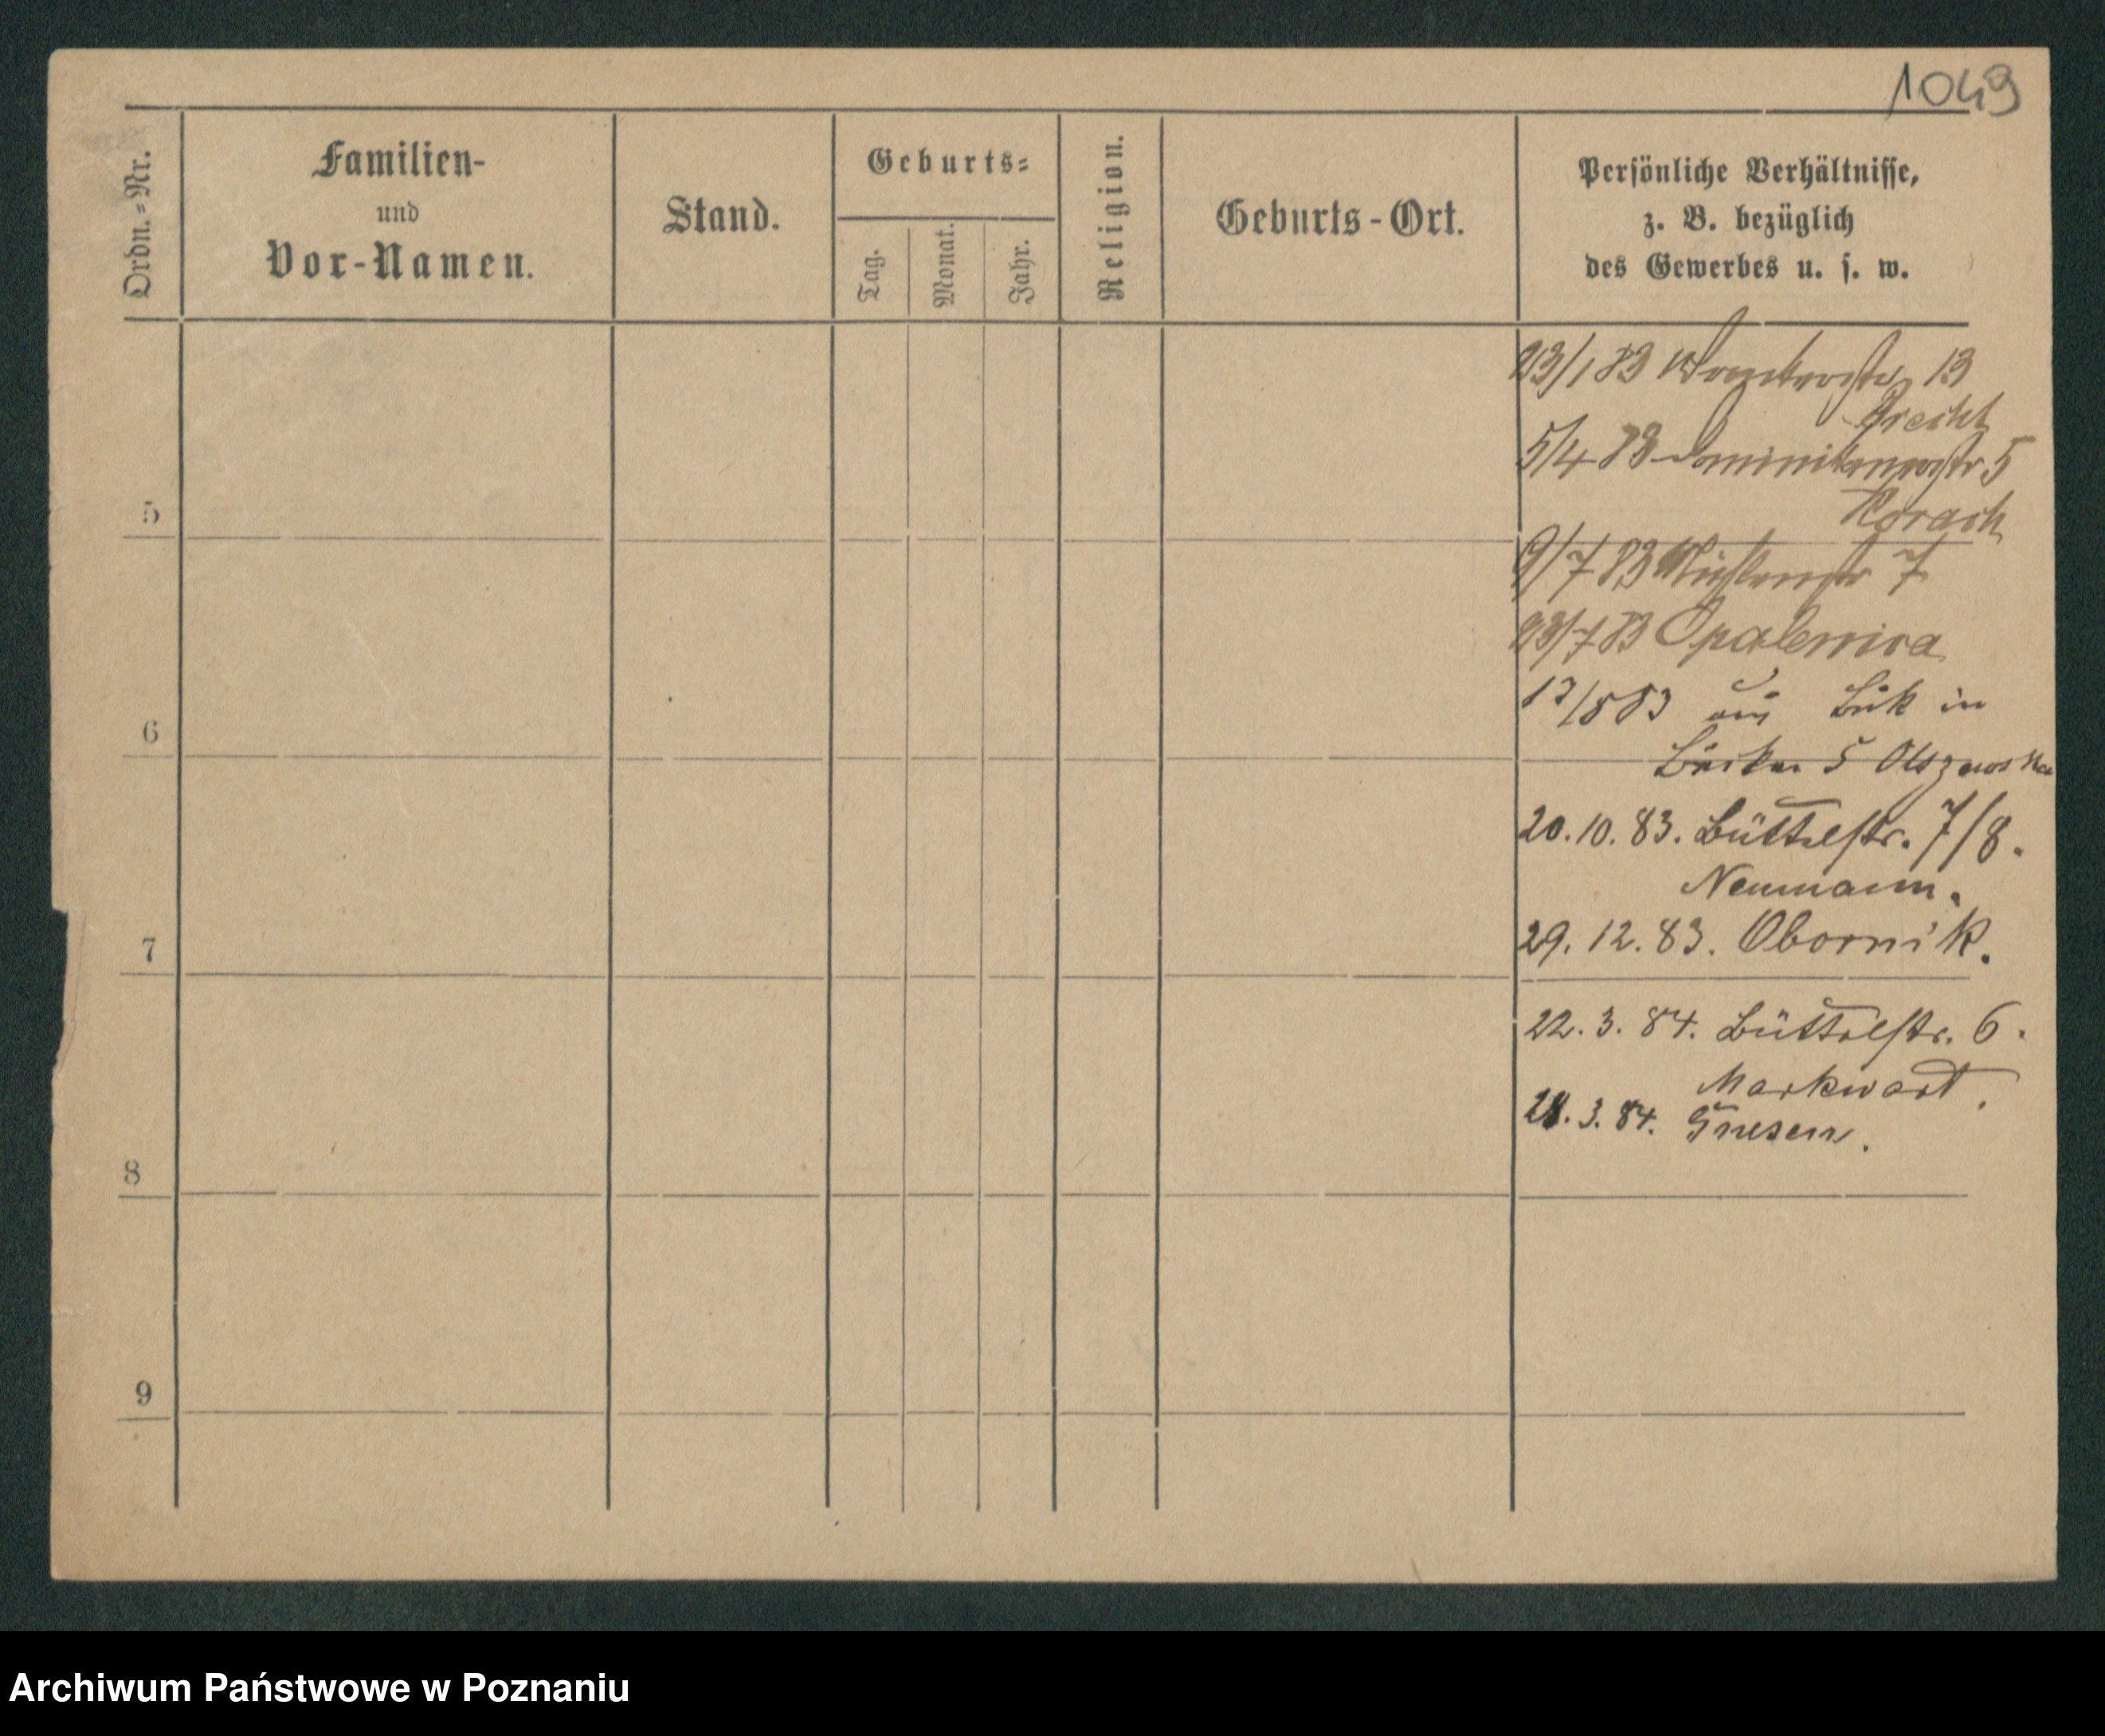 1049
Ordn.=Nr.
Familien-
und
Vor-Namen.
Stand.
Geburts=
Tag.
Monat.
Jahr.
Religion.
Geburts-Ort.
Persönliche Verhältnisse,
z. B. bezüglich
des Gewerbes u. s. w.
23/1 83 13
5/4 83 Dominikanerstr 5
5
9/7 83 Mühlenstr 7
23/7 83 Opalenica
17/8 83 aus Buk in
6
Bäcker 5 Olszewska
20. 10. 83. Büttelstr. 7/8.
Neumann.
29. 12. 83. Obornik.
7
22. 3. 84. Büttelstr. 6.
Markwart.
28. 3. 84. Gnesen.
8
9
Archiwum Państwowe w Poznaniu